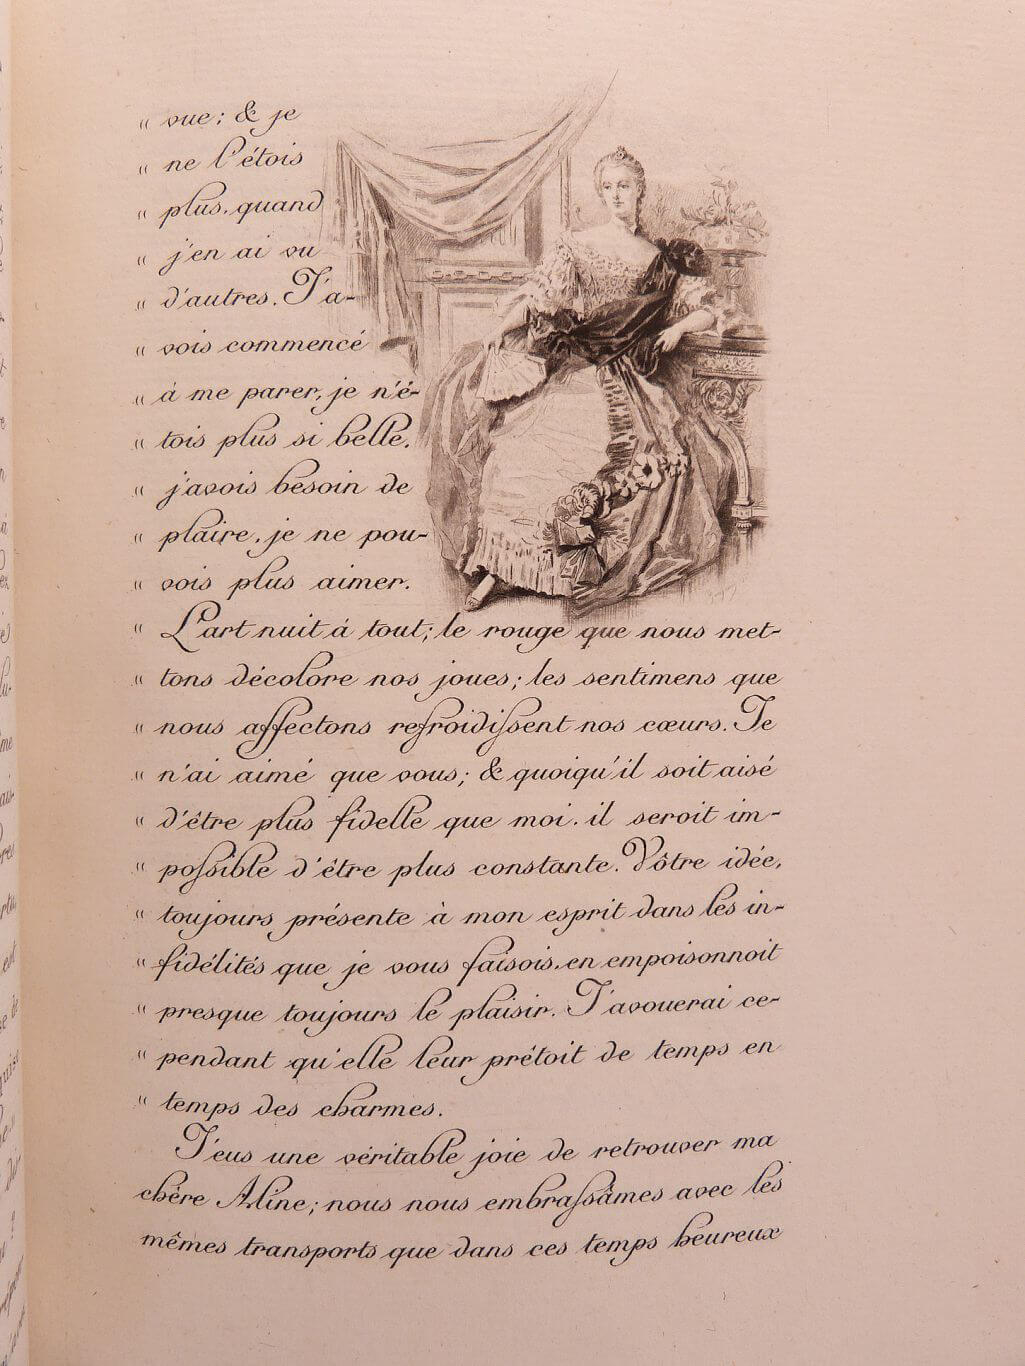 “ vue; & je
“ ne l'étois
“ plus, quand
“ j'en ai vu
“ d'autres. J'a-
“ vois commencé
“ à me parer, je n'é-
“ tois plus si belle,
“ j'avois besoin de
“ plaire, je ne pou-
“ vois plus aimer.
“ L'art nuit à tout; le rouge que nous met-
“ tons décolore nos joues; les sentimens que
“ nous affectons refroidissent nos cœurs. Je
“ n'ai aimé que vous; & quoiqu'il soit aisé
“ d'être plus fidelle que moi, il seroit im-
“ possible d'être plus constante. Vôtre idée,
“ toujours présente à mon esprit dans les in-
“ fidélités que je vous faisois, en empoisonnoit
“ presque toujours le plaisir. J'avouerai ce-
“ pendant qu'elle leur prétoit de temps en
“ temps des charmes.
J'eus une véritable joie de retrouver ma
chère Aline; nous nous embrassâmes avec les
mêmes transports que dans ces temps heureux